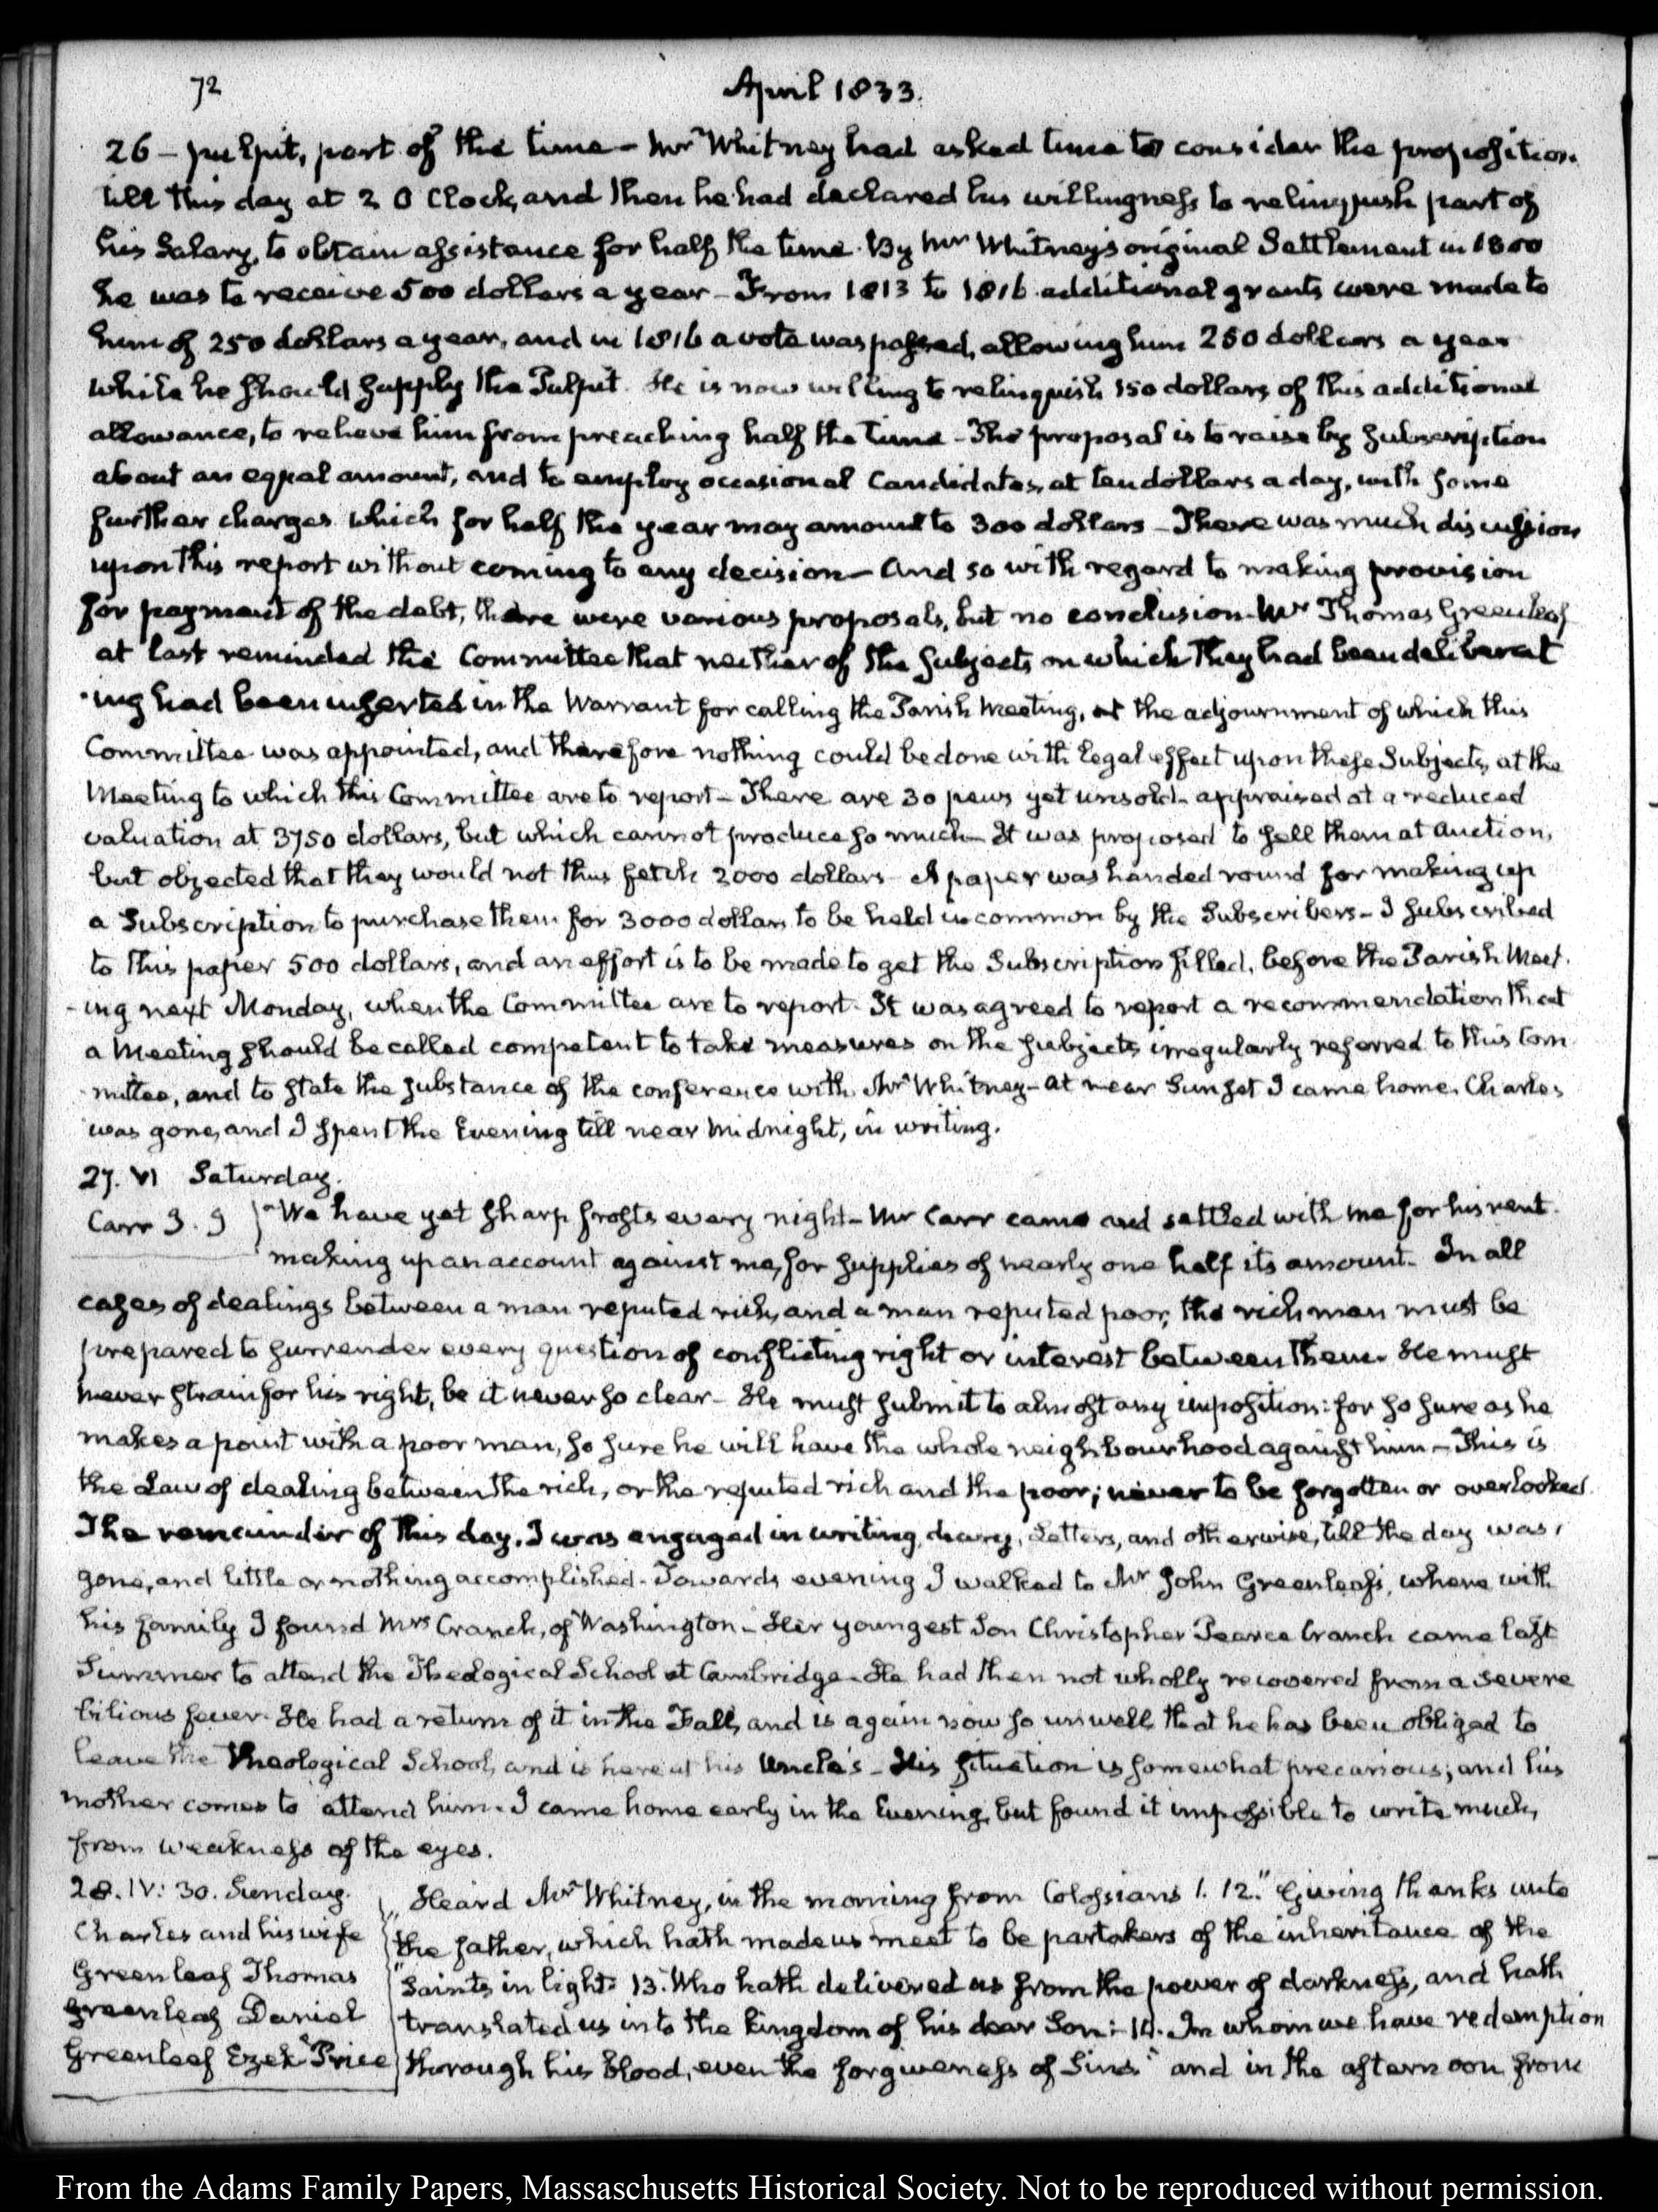 72
April 1833.
26 – pulpit, part of the time – Mr Whitney had asked time to consider the proposition
till this day at 2 O Clock, and then he had declared his willingness to relinquish part of
his Salary, to obtain assistance for half the time. By Mr Whitney's original Settlement in 1800
he was to receive 500 dollars a year – From 1813 to 1816 additional grants were made to
him of 250 dollars a year, and in 1816 a vote was passed, allowing him 250 dollars a year
while he should supply the Pulpit. He is now willing to relinquish 150 dollars of this additional
allowance, to relieve him from preaching half the time – The proposal is to raise by subscription
about an equal amount, and to employ occasional Candidates, at ten dollars a day, with some
further charges which for half the year may amount to 300 dollars – There was much discussion
upon this report without coming to any decision – And so with regard to making provision
for payment of the debt, there were various proposals, but no conclusion – Mr Thomas Greenleaf
at last reminded the Committee that neither of the subjects on which they had been deliberat
-ing had been inserted in the Warrant for calling the Parish Meeting, at the adjournment of which this
Committee was appointed, and therefore nothing could be done with legal effect upon these Subjects, at the
Meeting to which this Committee are to report – There are 30 pews yet unsold – appraised at a reduced
valuation at 3750 dollars, but which cannot produce so much – It was proposed to sell them at auction,
but objected that they would not thus fetch 2000 dollars – A paper was handed round for making up
a Subscription to purchase them for 3000 dollars to be held in common by the Subscribers – I subscribed
to this paper 500 dollars, and an effort is to be made to get the Subscription filled, before the Parish Meet.
-ing next Monday, when the Committee are to report. It was agreed to report a recommendation that
a Meeting should be called competent to take measures on the subjects irregularly referred to this Com
-mittee, and to state the substance of the conference with Mr Whitney – at near Sunset I came home. Charles
was gone, and I spent the Evening till near Midnight, in writing.
27. VI Saturday.
Carr 3. 9
We have yet sharp frosts every night – Mr Carr came and settled with me for his rent.
making up an account against me, for supplies of nearly one half its amount. In all
cases of dealings between a man reputed rich, and a man reputed poor, the rich man must be
prepared to surrender every question of conflicting right or interest between them. He must
never strain for his right, be it never so clear – He must submit to almost any imposition: for so sure as he
makes a point with a poor man, so sure he will have the whole neighbourhood against him – This is
the Law of dealing between the rich, or the reputed rich and the poor; never to be forgotten or overlooked.
The remainder of this day, I was engaged in writing, diary, Letters, and otherwise, till the day was
gone, and little or nothing accomplished – Towards evening I walked to Mr John Greenleaf's, where with
his family I found Mrs Cranch, of Washington – Her youngest Son Christopher Pearce Cranch came last
Summer to attend the Theological School at Cambridge – He had then not wholly recovered from a severe
bilious fever. He had a return of it in the Fall, and is again now so unwell that he has been obliged to
leave the Theological School, and is here at his Uncle's – His situation is somewhat precarious; and his
mother comes to attend him. I came home early in the Evening, but found it impossible to write much,
from weakness of the eyes.
28. IV: 30. Sunday.
Charles and his wife
Greenleaf Thomas
Greenleaf Daniel
Greenleaf Ezekl Price
Heard Mr Whitney, in the morning from Colossians 1. 12. "Giving thanks unto
"the father, which hath made us meet to be partakers of the inheritance of the
"Saints in light: 13. Who hath delivered us from the power of darkness, and hath
translated us into the kingdom of his dear Son: 14. In whom we have redemption
thorough his blood, even the forgiveness of Sins" and in the afternoon from
From the Adams Family Papers, Massaschusetts Historical Society. Not to be reproduced without permission.